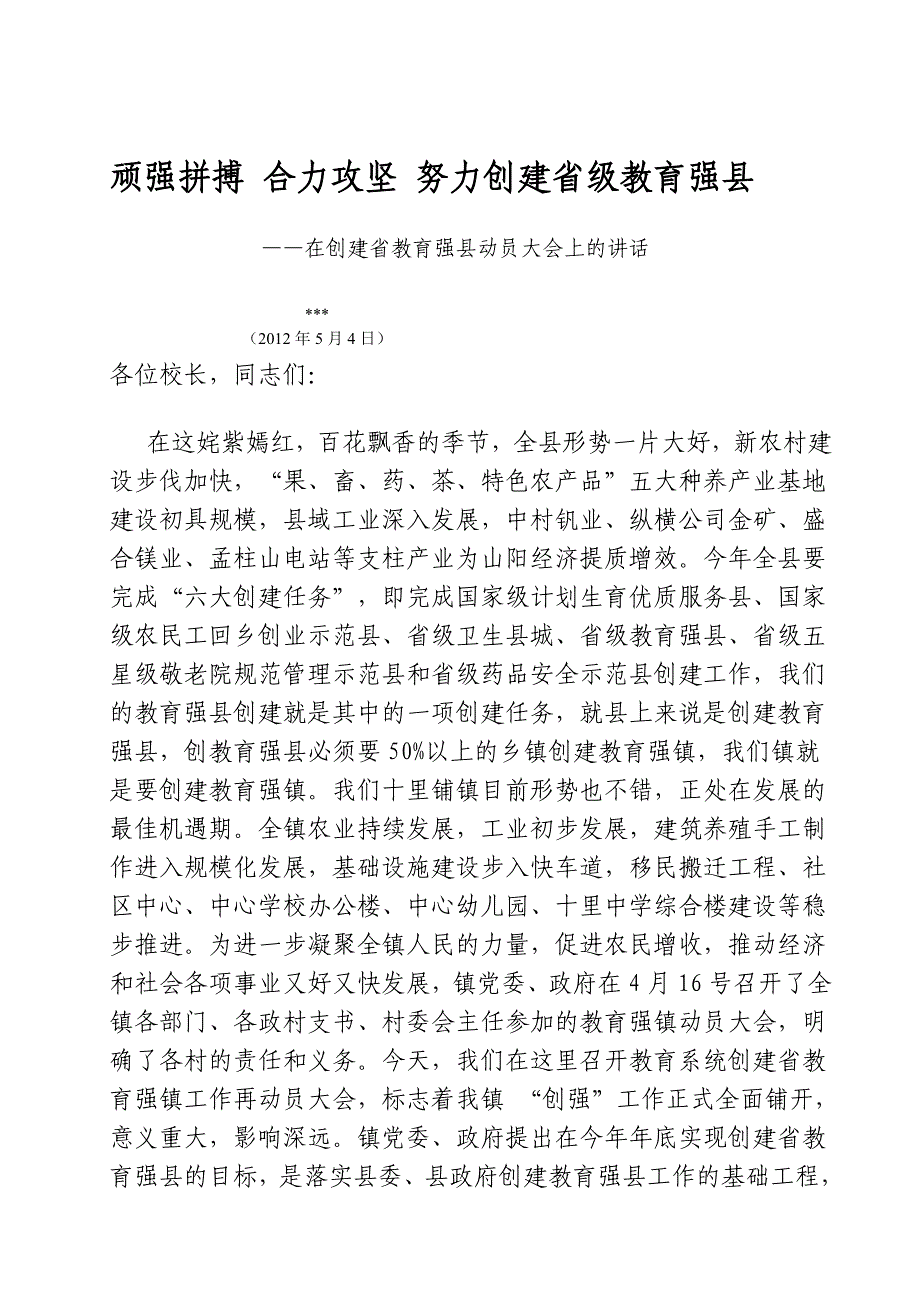 顽强拼搏 合力攻坚 努力创建省级教育强县
——在创建省教育强县动员大会上的讲话
***
（2012 年 5 月 4 日）
各位校长，同志们：
在这姹紫嫣红，百花飘香的季节，全县形势一片大好，新农村建
设步伐加快，“果、畜、药、茶、特色农产品”五大种养产业基地
建设初具规模，县域工业深入发展，中村钒业、纵横公司金矿、盛
合镁业、孟柱山电站等支柱产业为山阳经济提质增效。今年全县要
完成“六大创建任务”，即完成国家级计划生育优质服务县、国家
级农民工回乡创业示范县、省级卫生县城、省级教育强县、省级五
星级敬老院规范管理示范县和省级药品安全示范县创建工作，我们
的教育强县创建就是其中的一项创建任务，就县上来说是创建教育
强县，创教育强县必须要 50%以上的乡镇创建教育强镇，我们镇就
是要创建教育强镇。我们十里铺镇目前形势也不错，正处在发展的
最佳机遇期。全镇农业持续发展，工业初步发展，建筑养殖手工制
作进入规模化发展，基础设施建设步入快车道，移民搬迁工程、社
区中心、中心学校办公楼、中心幼儿园、十里中学综合楼建设等稳
步推进。为进一步凝聚全镇人民的力量，促进农民增收，推动经济
和社会各项事业又好又快发展，镇党委、政府在 4 月 16 号召开了全
镇各部门、各政村支书、村委会主任参加的教育强镇动员大会，明
确了各村的责任和义务。今天，我们在这里召开教育系统创建省教
育强镇工作再动员大会，标志着我镇 “创强”工作正式全面铺开，
意义重大，影响深远。镇党委、政府提出在今年年底实现创建省教
育强县的目标，是落实县委、县政府创建教育强县工作的基础工程，